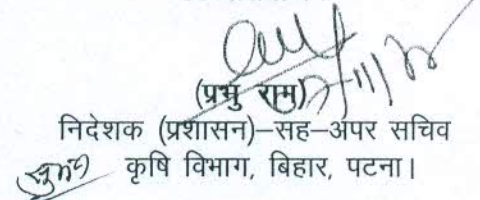 (प्रभु राम)
निदेशक (प्रशासन)–सह–अपर सचिव
कृषि विभाग, बिहार, पटना।